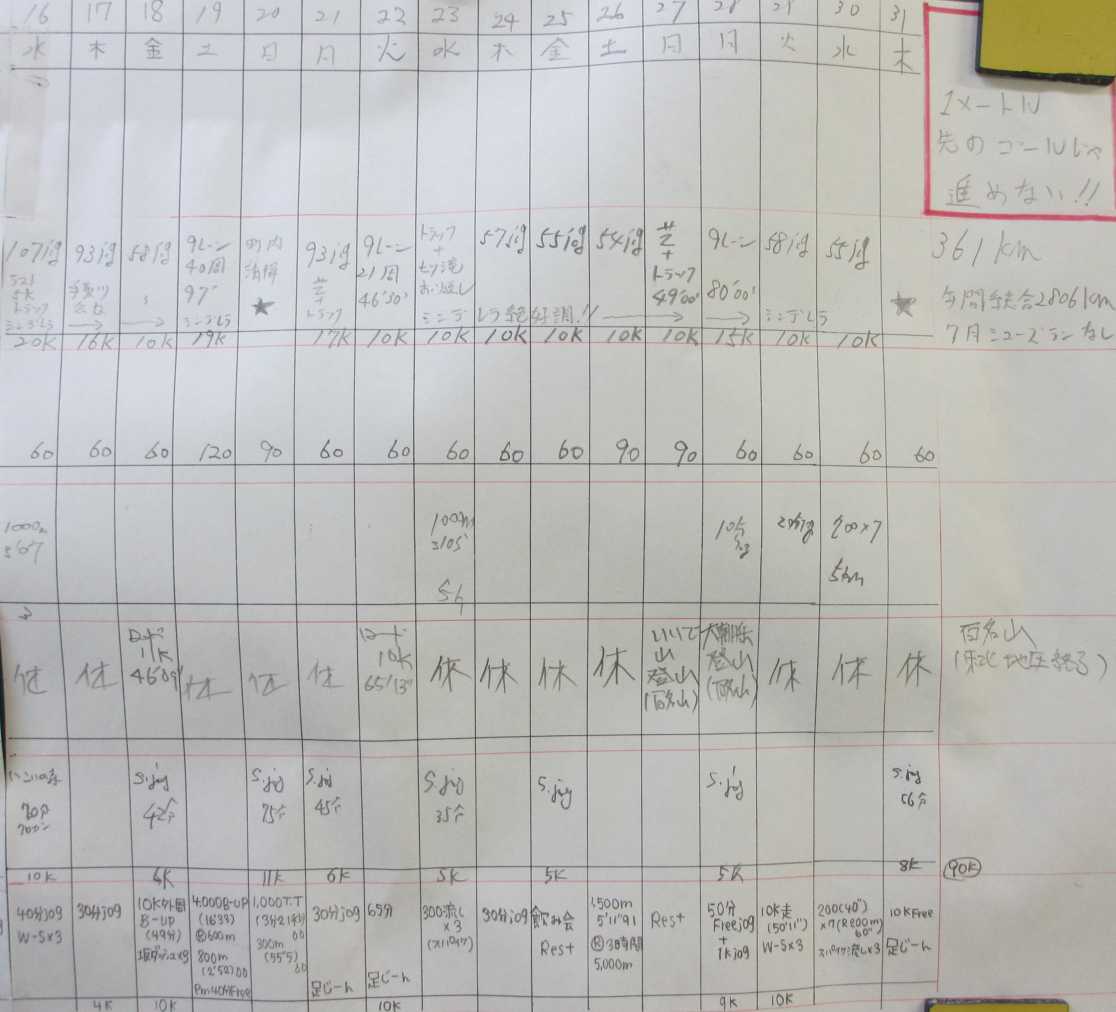 16 17 18 19 20 21 22 23 24 25 26 27 28 29 30 31
水 木 金 土 日 月 火 水 木 金 土 日 月 火 水 木
1メートル
先のゴールじゃ
進めない!!
107jog 93jog 58jog 9レーン 町内 93jog 9レーン トラック 57jog 55jog 54jog 芝 9レーン 58jog 55jog
40周 清掃 芝 21周 + + 80'00"
97' ★ トラック 46'30" トラック ★
シンデレラ 49'00"
シンデレラ絶好調!! → → シンデレラ
20K 16K 10K 19K 17K 10K 10K 10K 10K 10K 10K 15K 10K 10K
361km
年間総合2806km
7月シューズランなし
60 60 60 120 90 60 60 60 60 60 90 90 60 60 60 60
1000m 1000m 200×7
3'07 3'05"
5km
休 休 ロード 休 休 休 ロード 休 休 休 休 いいで 大朝日 休 休 休
11K 10K 山 登山
46'09" 65'13" 登山 (百名山)
(百名山)
百名山
(東北地区終了)
S.jog S.jog S.jog S.jog S.jog S.jog S.jog
42分 75分 45分 35分 56分
10K 6K 11K 6K 5K 5K 5K 8K 90K
40分jog 30分jog 10K外周 4,000B-UP 1,000T.T 30分jog 65分 300流し 30分jog 飲み会 1,500m Rest 50分 10K走 200(40") 10KFree
W-S×3 B-UP (16'33) (3分21秒) ×3 Rest 5'11"91 Freejog (50'11") ×7(R200m) 足じーん
(49分) 600m 300m (スパイク) 3時間 + W-S×3 60"
坂ダッシュ×3 800m (55"5) 足じーん 足じーん 5,000m 1kjog スパイク流し×3
(2'52)
Pm40分Free
4K 10K 10K 9K 10K